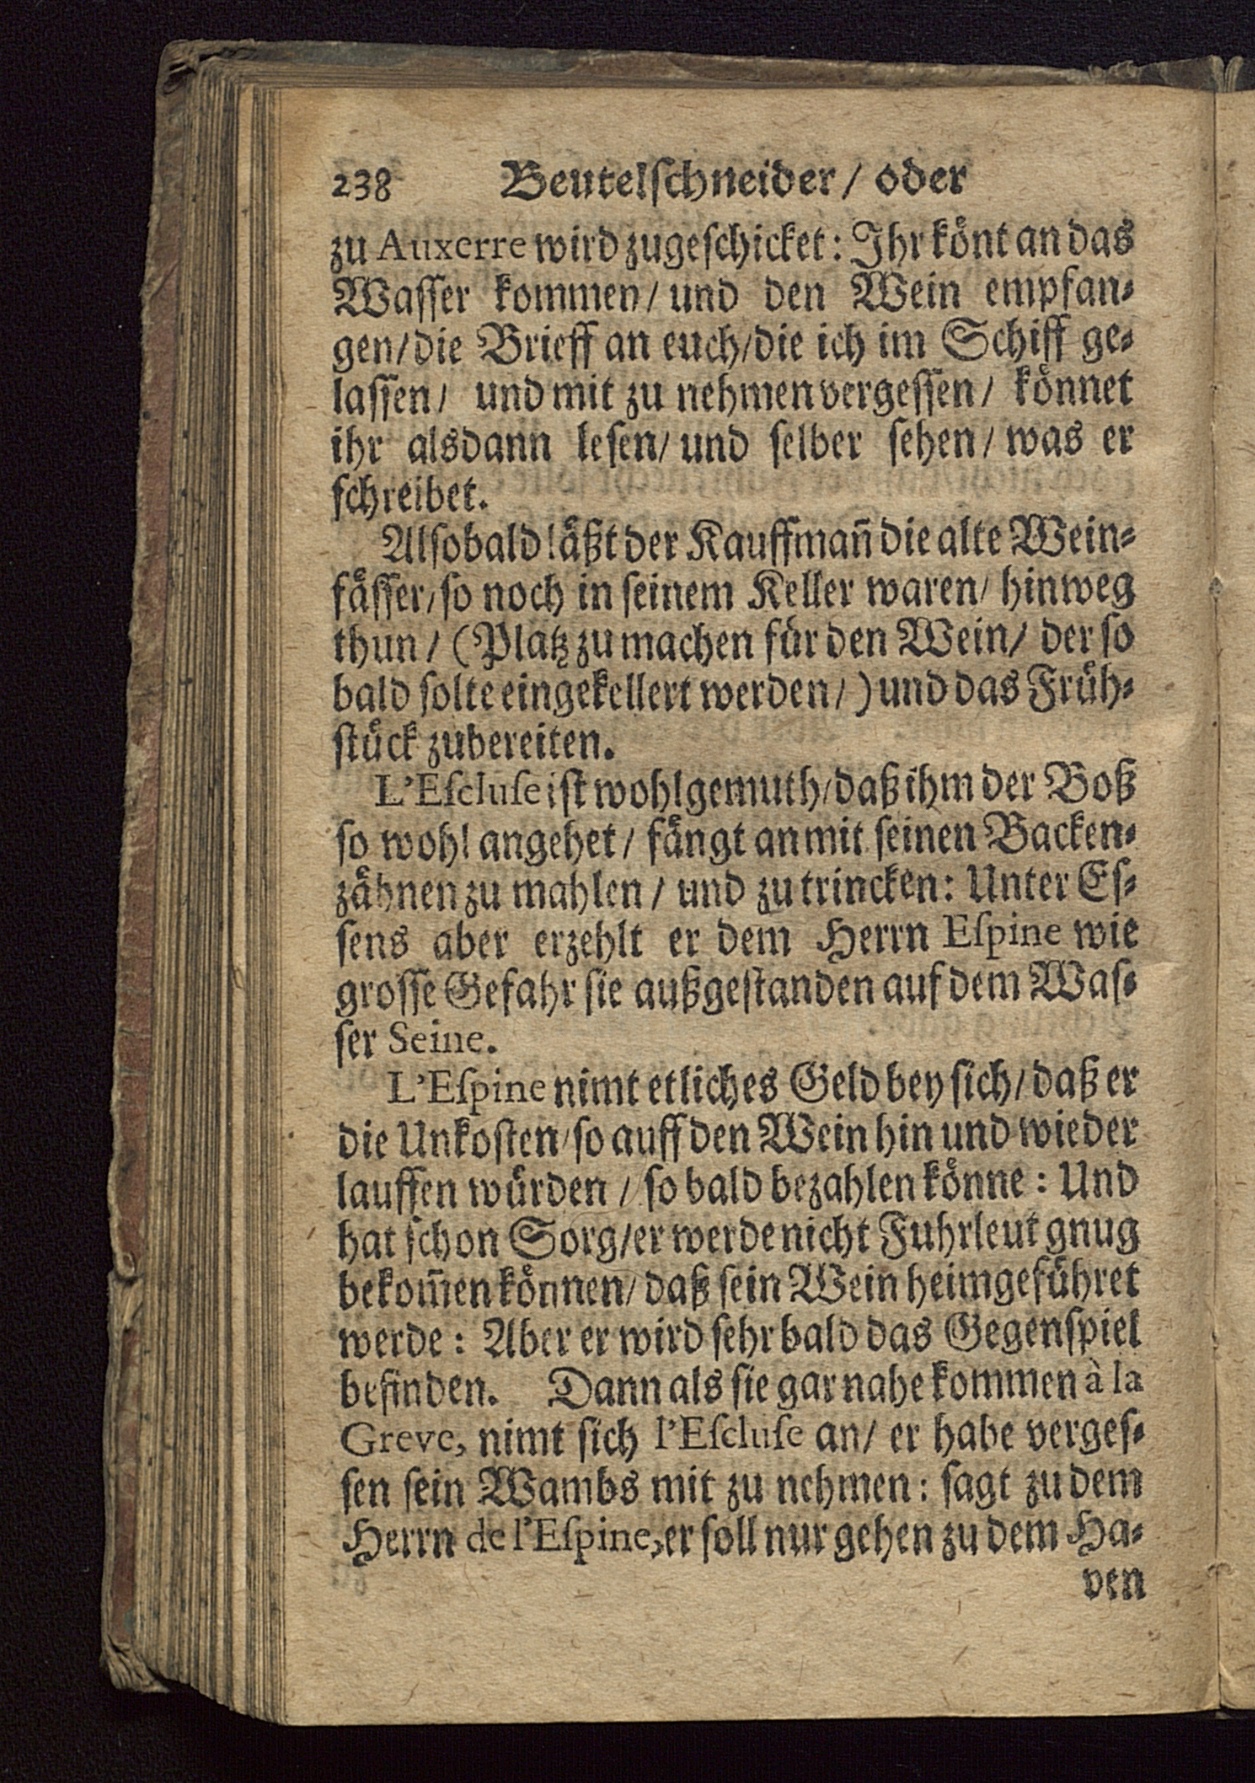 238 Beutelſchneider / oder
zu Auxerre wird zugeſchicket: Ihr koͤnt an das
Waſſer kommen / und den Wein empfan⸗
gen / die Brieff an euch / die ich im Schiff ge⸗
laſſen / und mit zu nehmen vergeſſen / koͤnnet
ihr alsdann leſen / und ſelber ſehen / was er
ſchreibet.
Alſobald laͤßt der Kauffmañ die alte Wein⸗
faͤſſer / ſo noch in ſeinem Keller waren / hinweg
thun / (Platz zu machen fuͤr den Wein / der ſo
bald ſolte eingekellert werden /) und das Fruͤh⸗
ſtuͤck zubereiten.
L'Eſcluſe iſt wohlgemuth / daß ihm der Boß
ſo wohl angehet / faͤngt an mit ſeinen Backen⸗
zaͤhnen zu mahlen / und zu trincken: Unter Eſ⸗
ſens aber erzehlt er dem Herrn Eſpine wie
groſſe Gefahr ſie außgeſtanden auf dem Waſ⸗
ſer Seine.
L'Eſpine nimt etliches Geld bey ſich / daß er
die Unkoſten / ſo auff den Wein hin und wieder
lauffen wuͤrden / ſo bald bezahlen koͤnne: Und
hat ſchon Sorg / er werde nicht Fuhrleut gnug
bekom̃en koͤnnen / daß ſein Wein heimgefuͤhret
werde: Aber er wird ſehr bald das Gegenſpiel
befinden. Dann als ſie gar nahe kommen à la
Greve, nimt ſich l'Eſcluſe an / er habe vergeſ⸗
ſen ſein Wambs mit zu nehmen: ſagt zu dem
Herrn de l'Eſpine, er ſoll nur gehen zu dem Ha⸗
ven